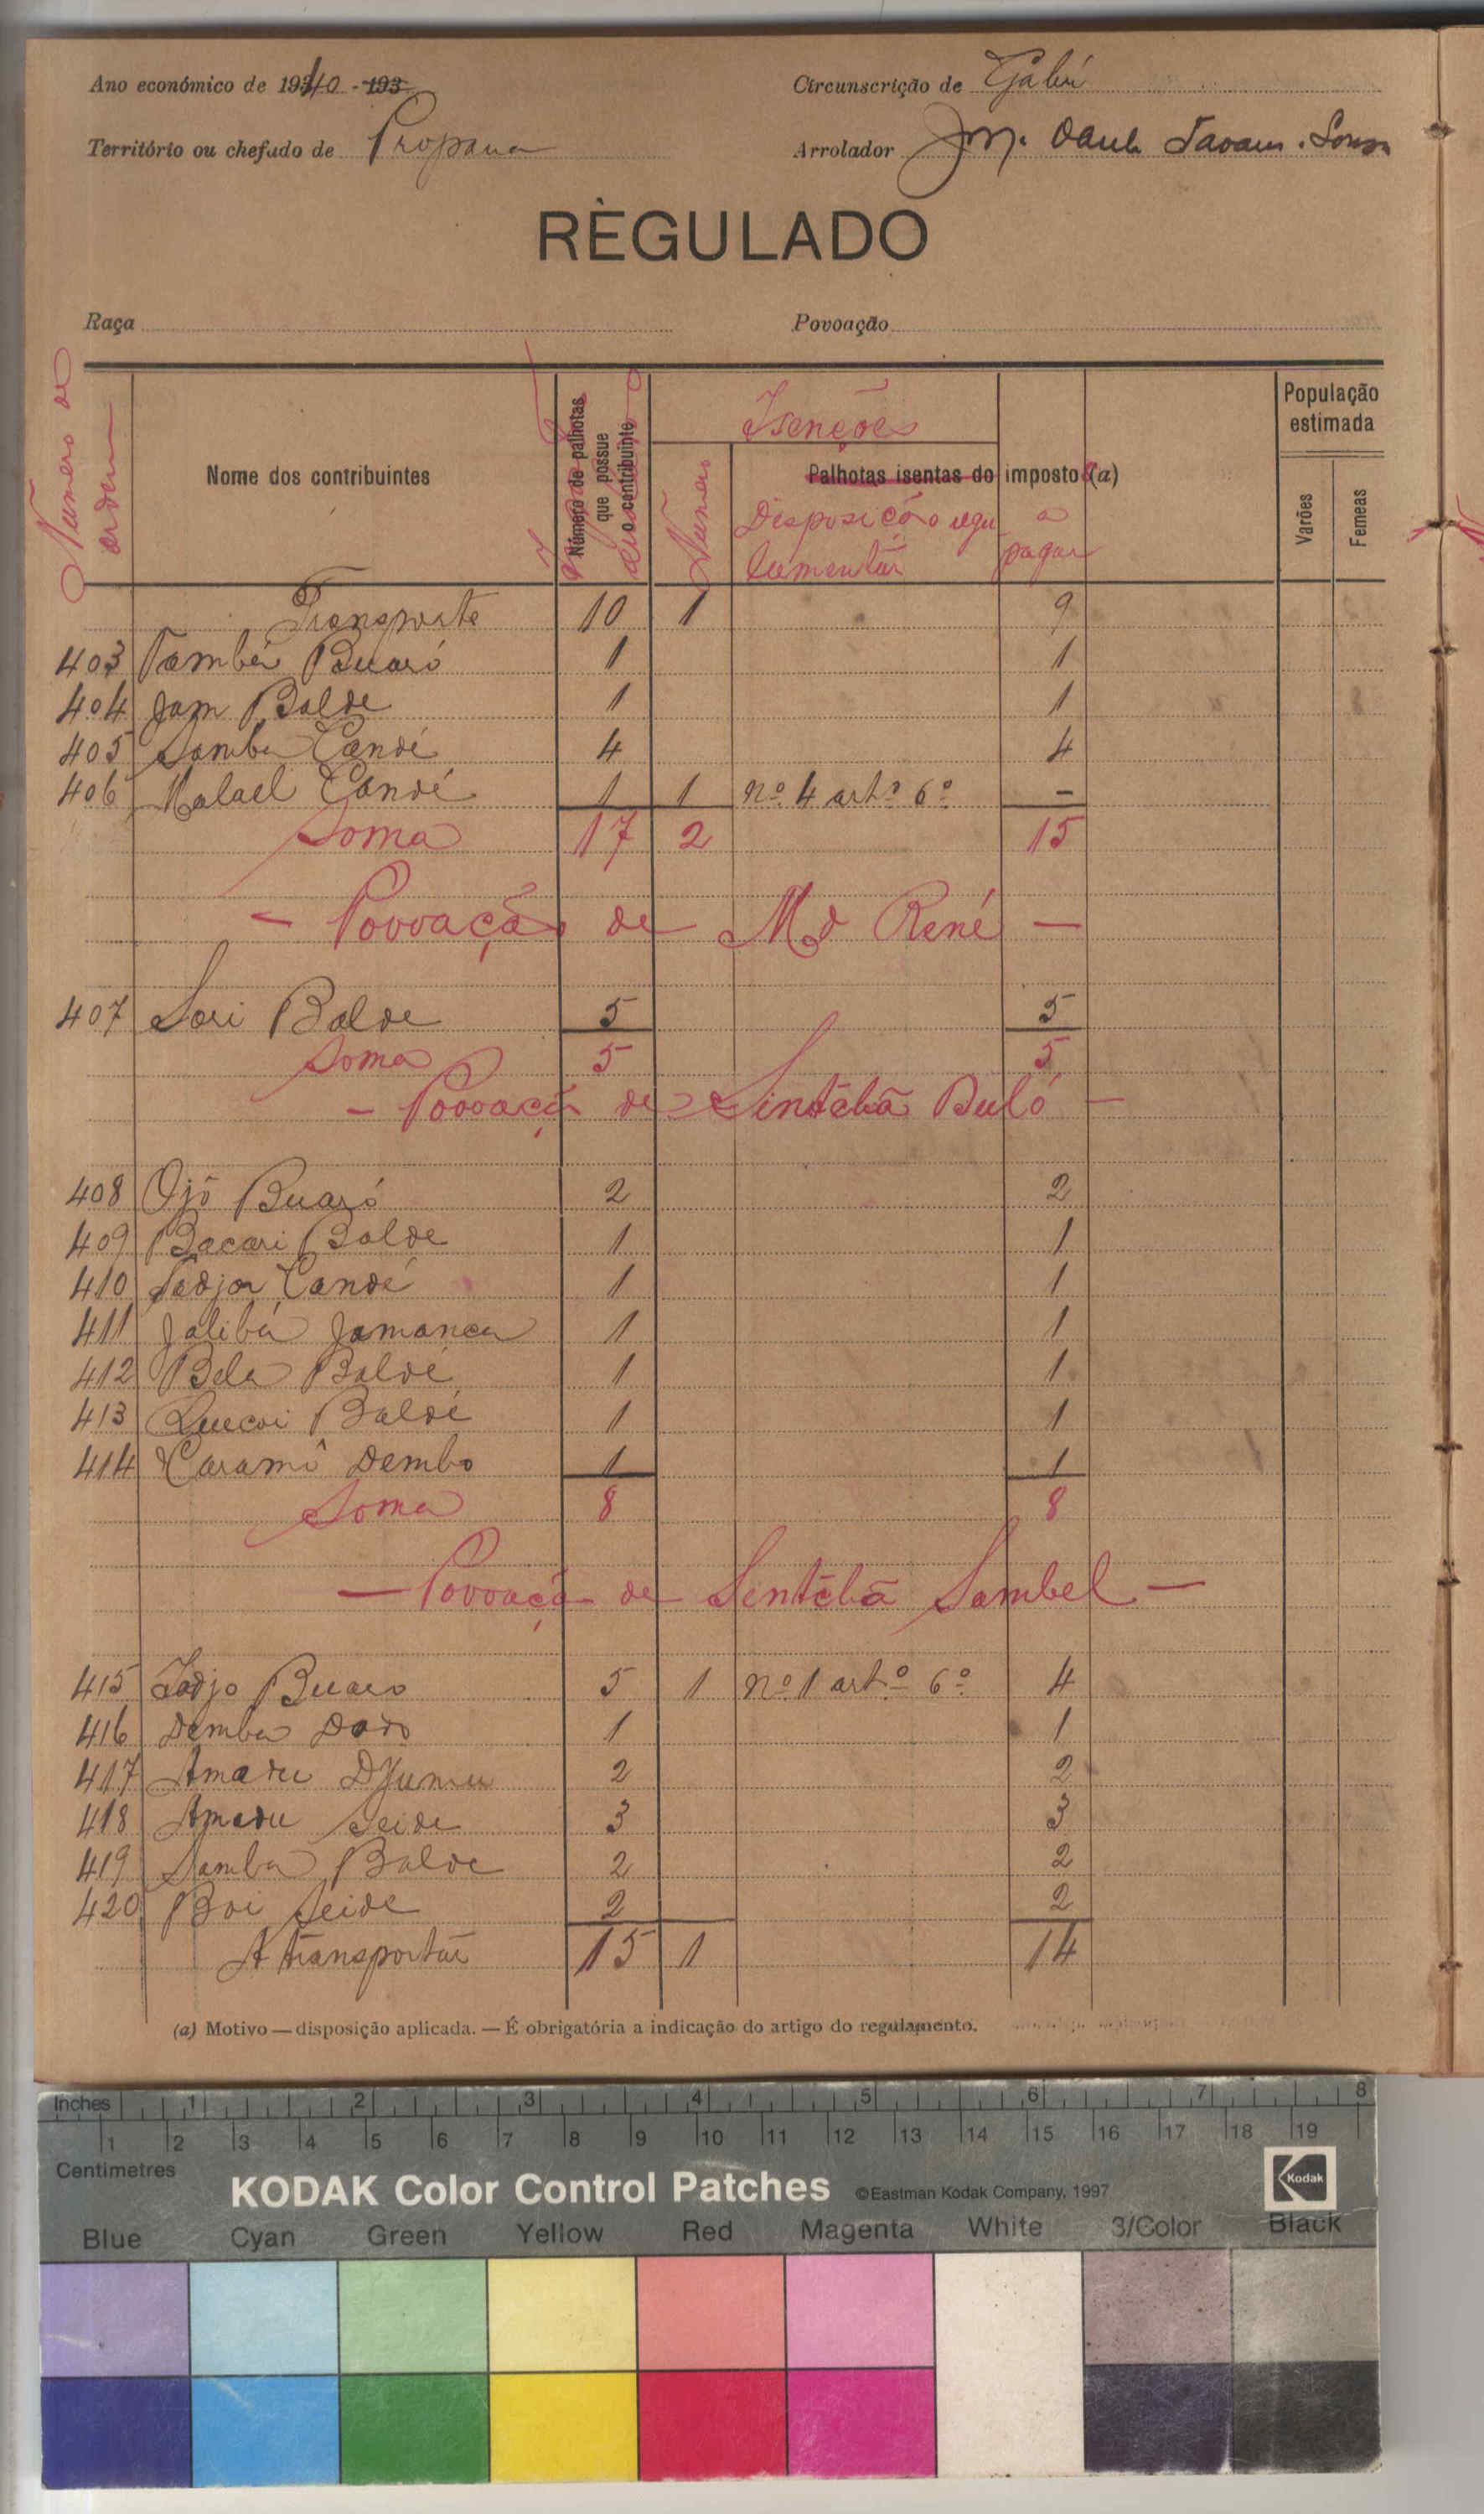 Ano económico de 1940 - 193
Circunscrição de Gabú
Território ou chefado de Propana
Arrolador
RÈGULADO
Raça
Povoação
Número de ordem
Nome dos contribuintes
Número de palhotas que possue o contribuinte
Isenções
Número
Palhotas isentas do imposto (a)
Disposição regulamentar
a pagar
População estimada
Varões
Femeas
Transporte 10 1 9
403 Tambá Buaró 1 1
404 Jam Balde 1 1
405 Samba Candé 4 4
406 Malael Candé 1 1 nº 4 artº 6º -
Soma 17 2 15
- Povoação de Md René -
407 Sori Balde 5 5
Soma 5 5
- Povoaçã de Sintchã Buló -
408 Ojô Buaró 2 2
409 Bacari Balde 1 1
410 Candé 1 1
411 Jalibá Jamanca 1 1
412 Bela Baldé 1 1
413 Baldé 1 1
414 Caramô Dembo 1 1
Soma 8 8
- Povoaçã de Sentchã Sambel -
415 Buaro 5 1 nº 1 artº 6º 4
416 Demba 1 1
417 Amadu 2 2
418 Amadu Seide 3 3
419 Samba Balde 2 2
420 Boi Seide 2 2
A transportar 15 1 14
(a) Motivo — disposição aplicada. — É obrigatória a indicação do artigo do regulamento.
Inches 1 2 3 4 5 6 7 8
1 2 3 4 5 6 7 8 9 10 11 12 13 14 15 16 17 18 19
Centimetres
KODAK Color Control Patches ©Eastman Kodak Company, 1997 Kodak
Blue Cyan Green Yellow Red Magenta White 3/Color Black